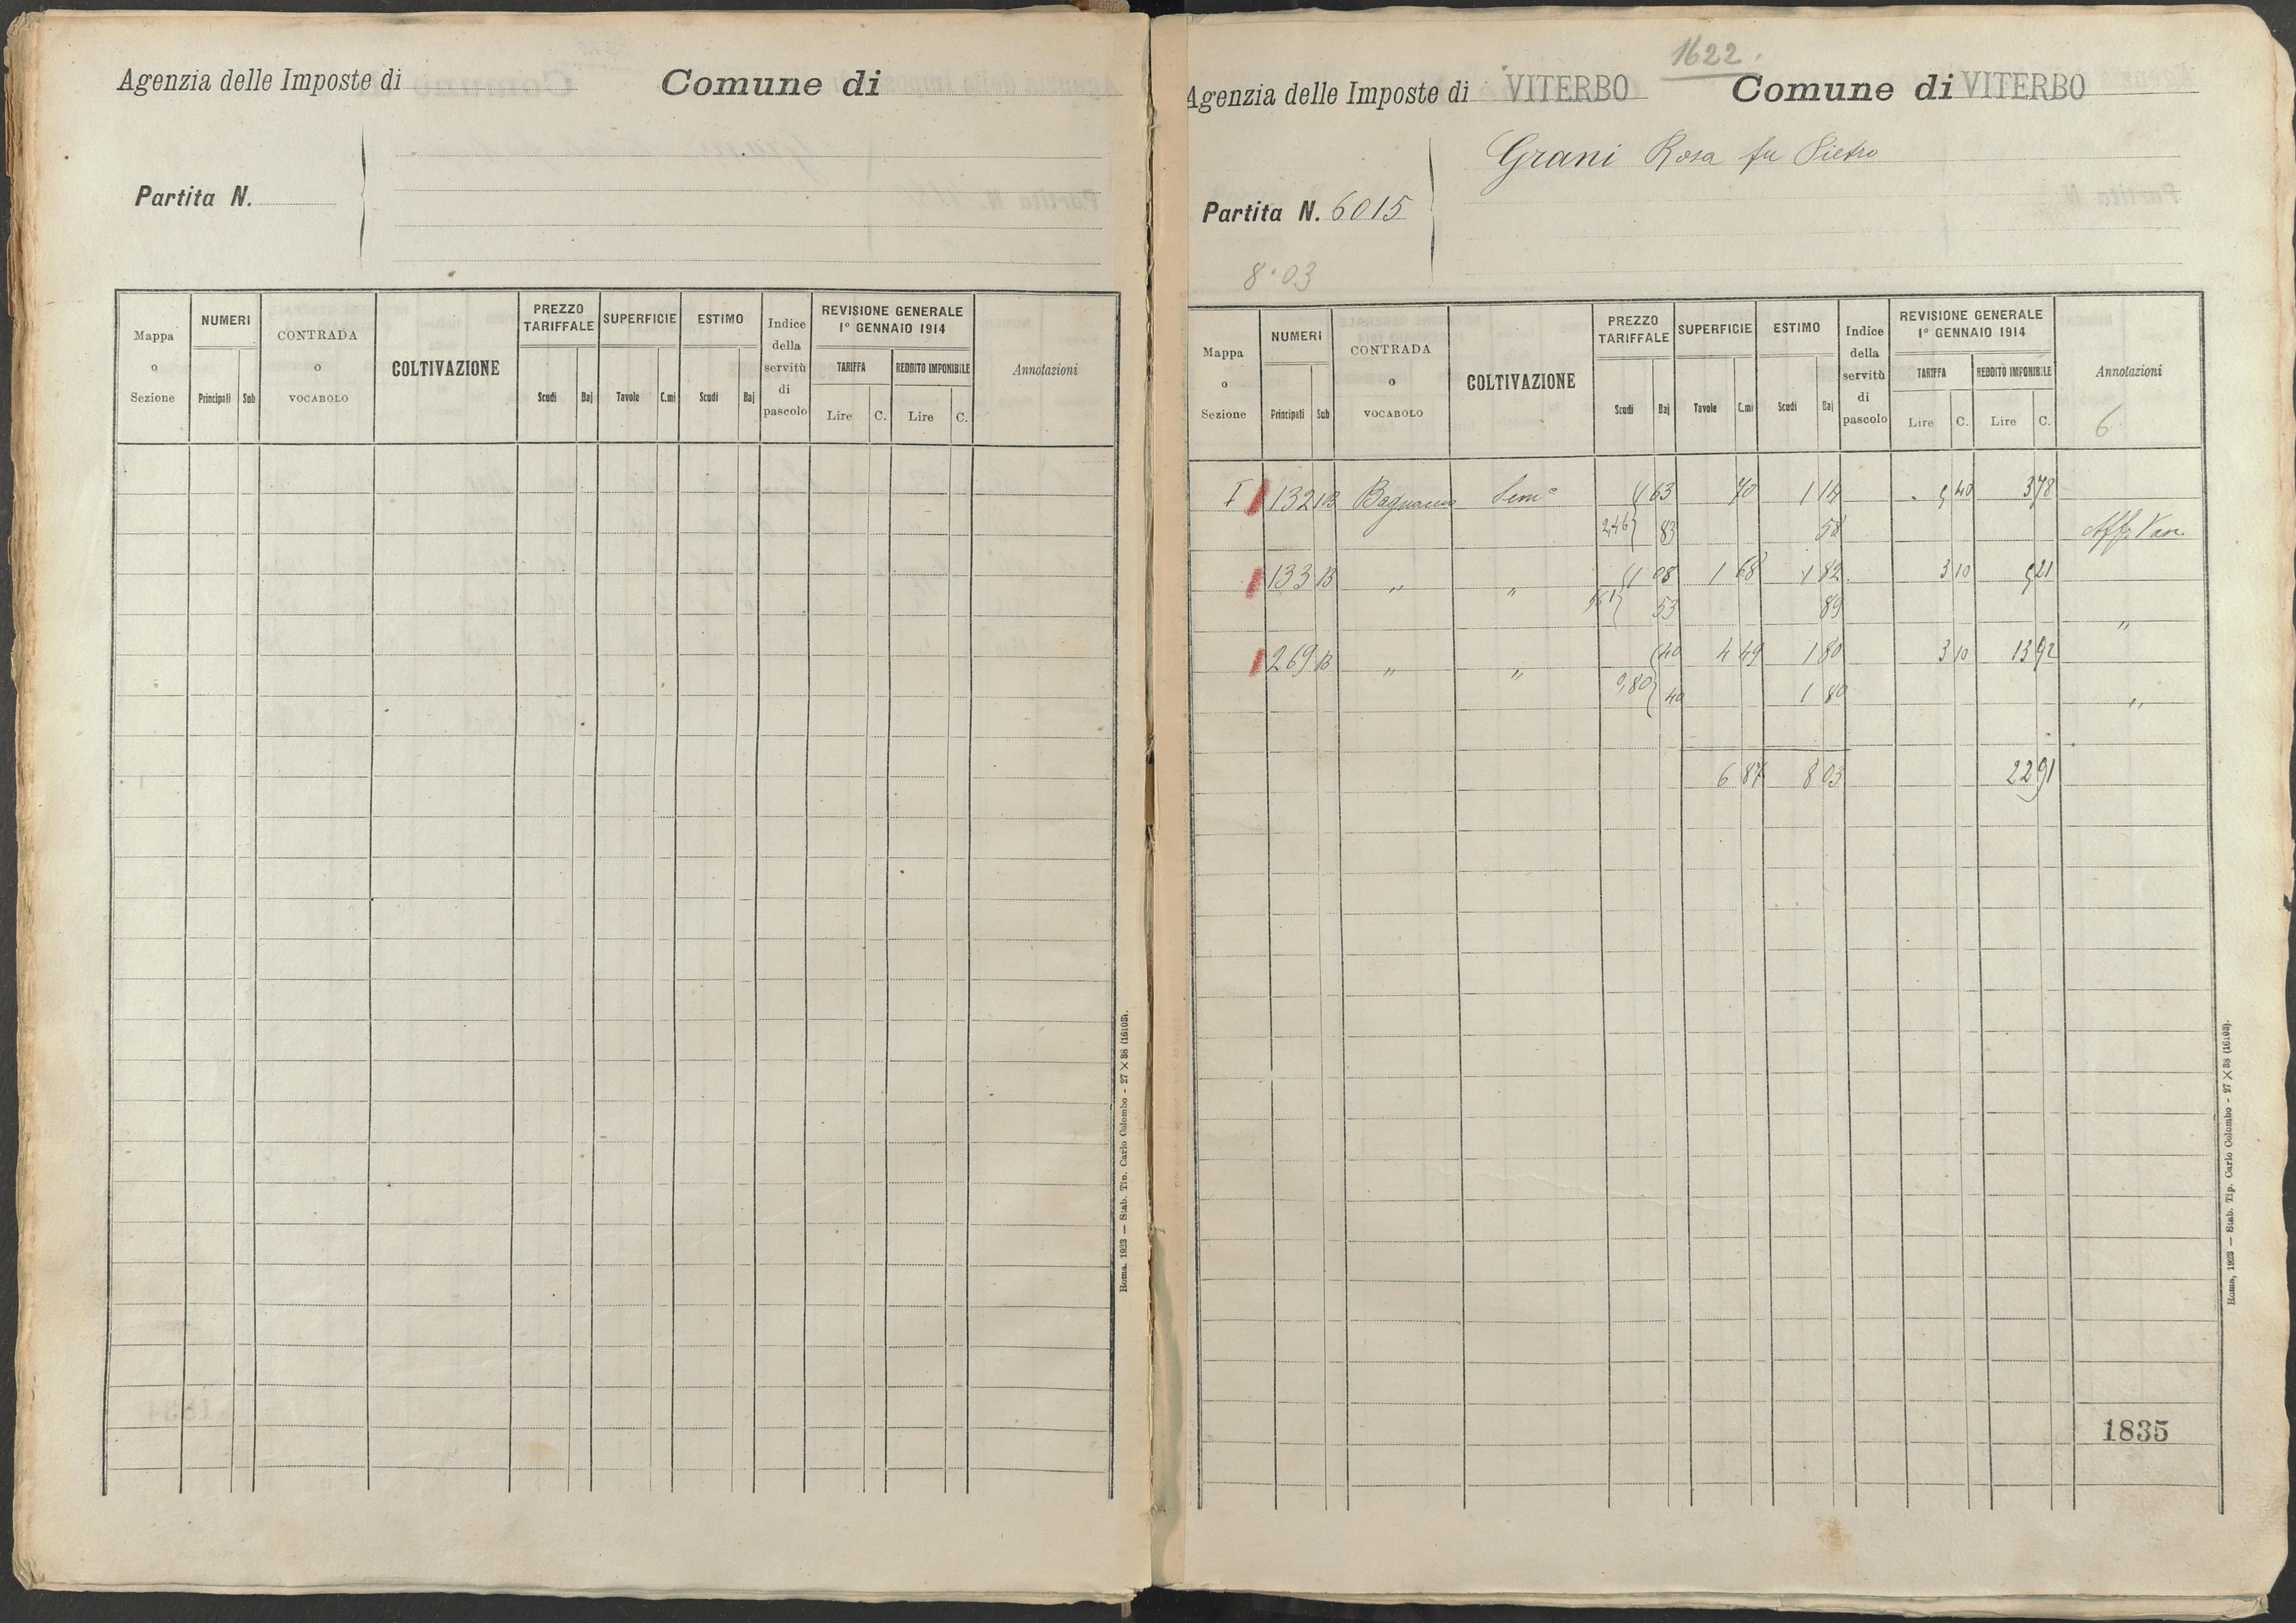 Agenzia delle Imposte di Comune di
Partita N.
Mappa o Sezione NUMERI Principali Sub CONTRADA o VOCABOLO COLTIVAZIONE PREZZO TARIFFALE Scudi Baj SUPERFICIE Tavole C.mi ESTIMO Scudi Baj Indice della servitù di pascolo REVISIONE GENERALE 1° GENNAIO 1914 TARIFFA Lire C. REDDITO IMPONIBILE Lire C. Annotazioni
Roma, 1923 — Stab. Tip. Carlo Colombo - 27 X 38 (16103).
1622.
Agenzia delle Imposte di VITERBO Comune di VITERBO
Grani Rosa fu Pietro
Partita N. 6015
8.03
Mappa o Sezione NUMERI Principali Sub CONTRADA o VOCABOLO COLTIVAZIONE PREZZO TARIFFALE Scudi Baj SUPERFICIE Tavole C.mi ESTIMO Scudi Baj Indice della servitù di pascolo REVISIONE GENERALE 1° GENNAIO 1914 TARIFFA Lire C. REDDITO IMPONIBILE Lire C. Annotazioni
6
I 132 1B Sem° 1 63 70 1 14 5 40 3 78
2,46 83 58 Aff. Van.
133 B " " 1 08 1 68 1 82 3 10 5 21
53 89 "
269 B " " 40 4 49 1 80 3 10 13 92
0,80 40 1 80 "
6 87 8 03 22 91
1835
Roma, 1923 — Stab. Tip. Carlo Colombo - 27 X 38 (16103).